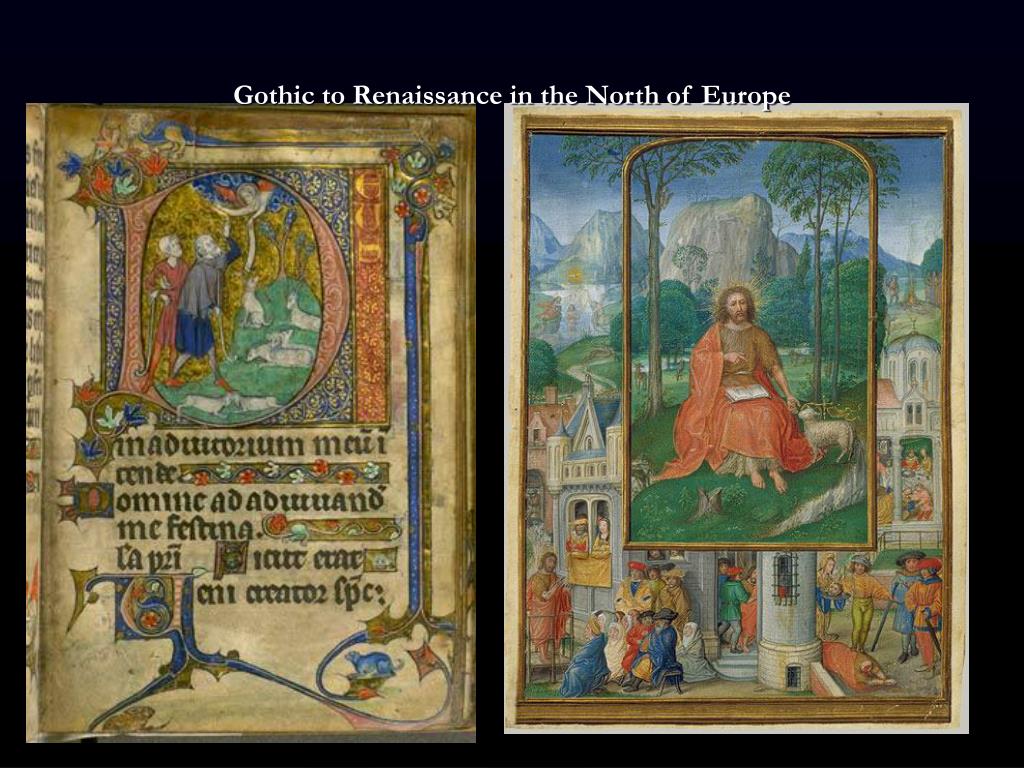 Gothic to Renaissance in the North of Europe
D
in adiutorium meū ī
tende
Domine ad adiuuand
me festina.
la pri Sicut erat
Veni creator spc: